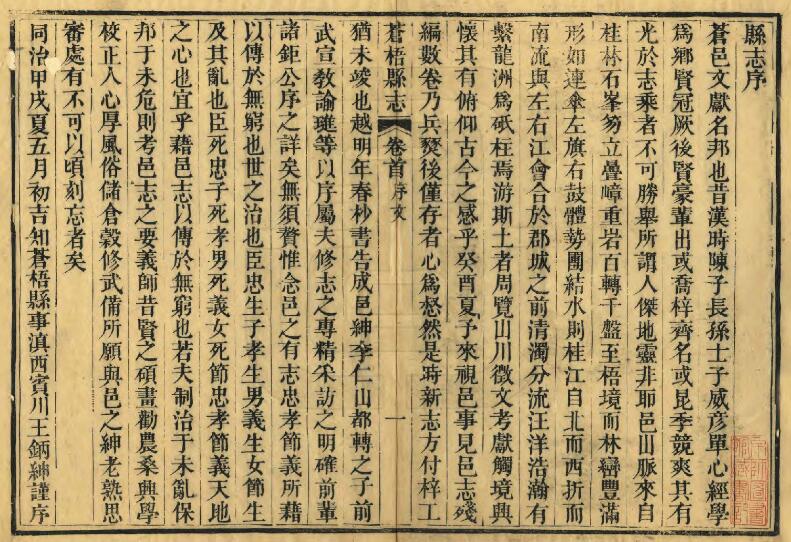 縣志序
蒼邑文獻名邦也昔漢時陳子長孫士子威彥單心經學
爲鄉賢冠厥後賢豪輩出或喬梓齊名或昆季競爽其有
光於志乘者不可勝舉所謂人傑地靈非耶邑山脈來自
桂林石峯笏立疊嶂重岩百轉千盤至梧境而林巒豐滿
形如連傘左旗右鼓體勢團結水則桂江自北而西折而
南流與左右江會合於郡城之前清濁分流汪洋浩瀚有
繫龍洲爲砥柱焉游斯土者周覽山川徵文考獻觸境興
懷其有俯仰古今之感乎癸酉夏予來視邑事見邑志殘
編數卷乃兵燹後僅存者心爲惄然是時新志方付梓工
蒼梧縣志
卷首
序文
一
猶未竣也越明年春杪書告成邑紳李仁山都轉之子前
武宣教諭璡等以序屬夫修志之專精采訪之明確前輩
諸鉅公序之詳矣無須贅惟念邑之有志忠孝節義所藉
以傳於無窮也世之治也臣忠生子孝生男義生女節生
及其亂也臣死忠子死孝男死義女死節忠孝節義天地
之心也宜乎藉邑志以傳於無窮也若夫制治于未亂保
邦于未危則考邑志之要義師昔賢之碩畫勸農桑興學
校正人心厚風俗儲倉穀修武備所願與邑之紳老熟思
審處有不可以頃刻忘者矣
同治甲戌夏五月初吉知蒼梧縣事滇西賓川王鈵紳謹序